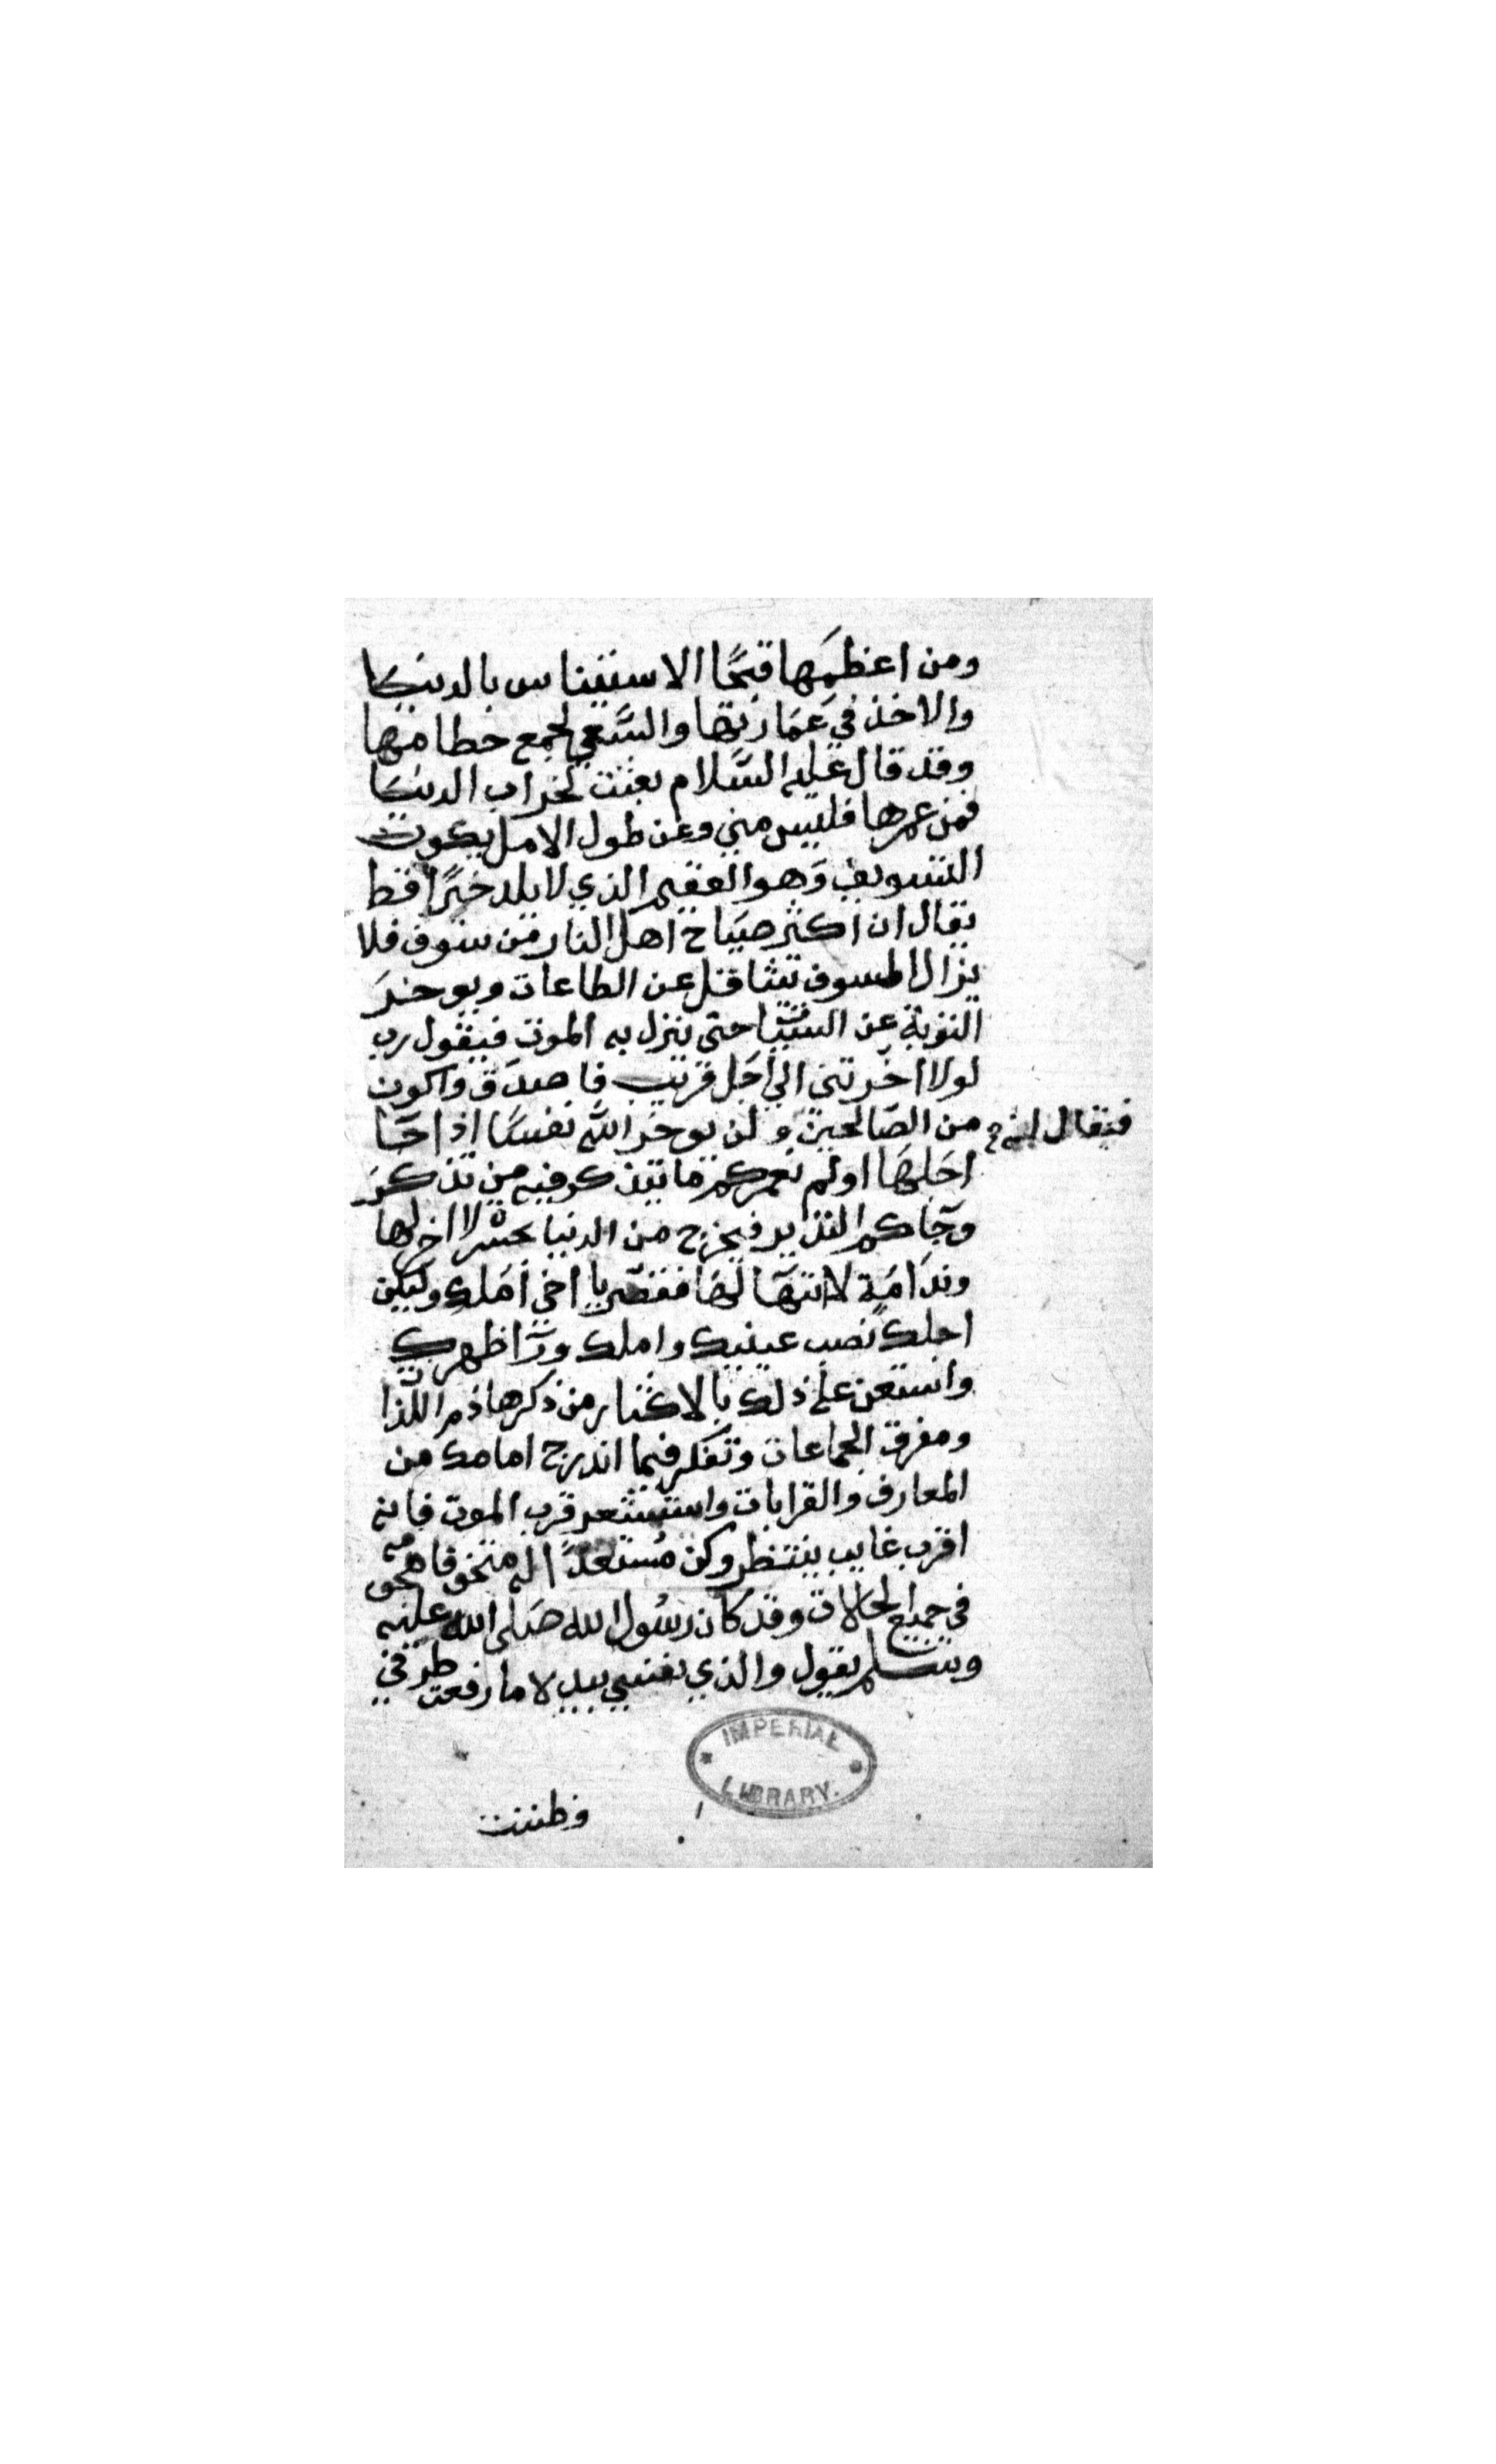 ومن اعظمها قبحًا الاستيناس بالدنيا
والاخذ في عمارتها والسعي لجمع حطامها
وقد قال عليه السلام بعثت لخراب الدنيا
فمن عمرها فليس مني وعن طول الامل يكون
التسويف وهو العقيم الذي لا يلد خيرًا قط
يقال ان اكثر صياح اهل النار من سوف فلا
يزال المسوف يتثاقل عن الطاعات ويوخر
التوبة عن السيئات حتى ينزل به الموت فيقول رب
لولا اخرتني الى اجل قريب فاصدق واكون
من الصالحين ولن يوخر الله نفسا اذا جا
فيقال له
اجلها اولم نعمركم ما يتذكر فيه من تذكر
وجاكم النذير فيخرج من الدنيا بحسرة لا اخر لها
وندامة لا انتها لها فقصر يا اخي املك وليكن
اجلك نصب عينيك واملك ورا ظهرك
واستعن على ذلك بالاكثار من ذكر هاذم اللذات
ومفرق الجماعات وتفكر فيما اندرج امامك من
المعارف والقرابات واستشعر قرب الموت فانه
اقرب غايب ينتظر وكن مستعدًا له متخوفا هجومه
في جميع الحالات وقد كان رسول الله صلى الله عليه
وسلم يقول والذي نفسي بيده لا ما رفعت طرفي
IMPERIAL LIBRARY.
وظننت